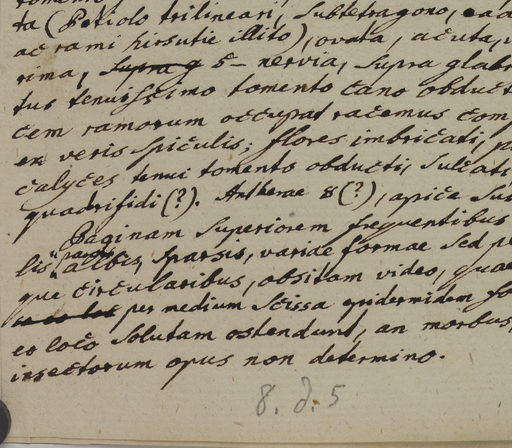 ta (Petiolo trilineari, subtetragono, ea
ac rami hirsutie illito), ovata, acuta,
rima, supra g 5-nervia, supra glabr
tus tenuissimo tomento cano obduct
cem ramorum occupat racemus com
ex veris spiculis; flores imbricati, p
calyces tenui tomento obducti, sulcati,
quadrifidi (?). Antherae 8 (?), apice su
Paginam superiorem frequentibus
lis albis, sparsis, variae formae sed pl
que circularibus, obsitam video, quae
per medium scissa epidermidem
eo loco solutam ostendunt, an morbus,
insectorum opus non determino.
8. d. 5